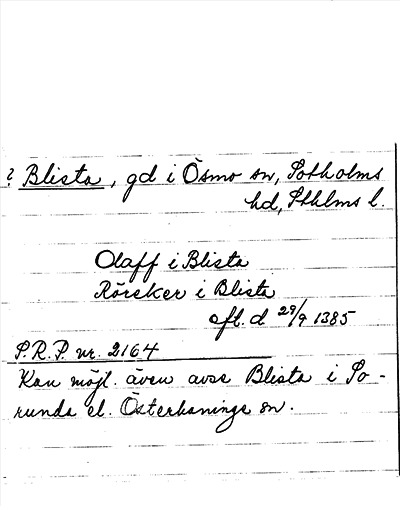 ? Blista, gd i Ösmo sn, Sotholms
hd, Sthlms l.
Olaff i Blista
Röreker i Blista
afl. d 29/9 1385
S.R.P. nr. 2164
Kan möjl. även avse Blista i So-
runda el. Österhaninge sn.